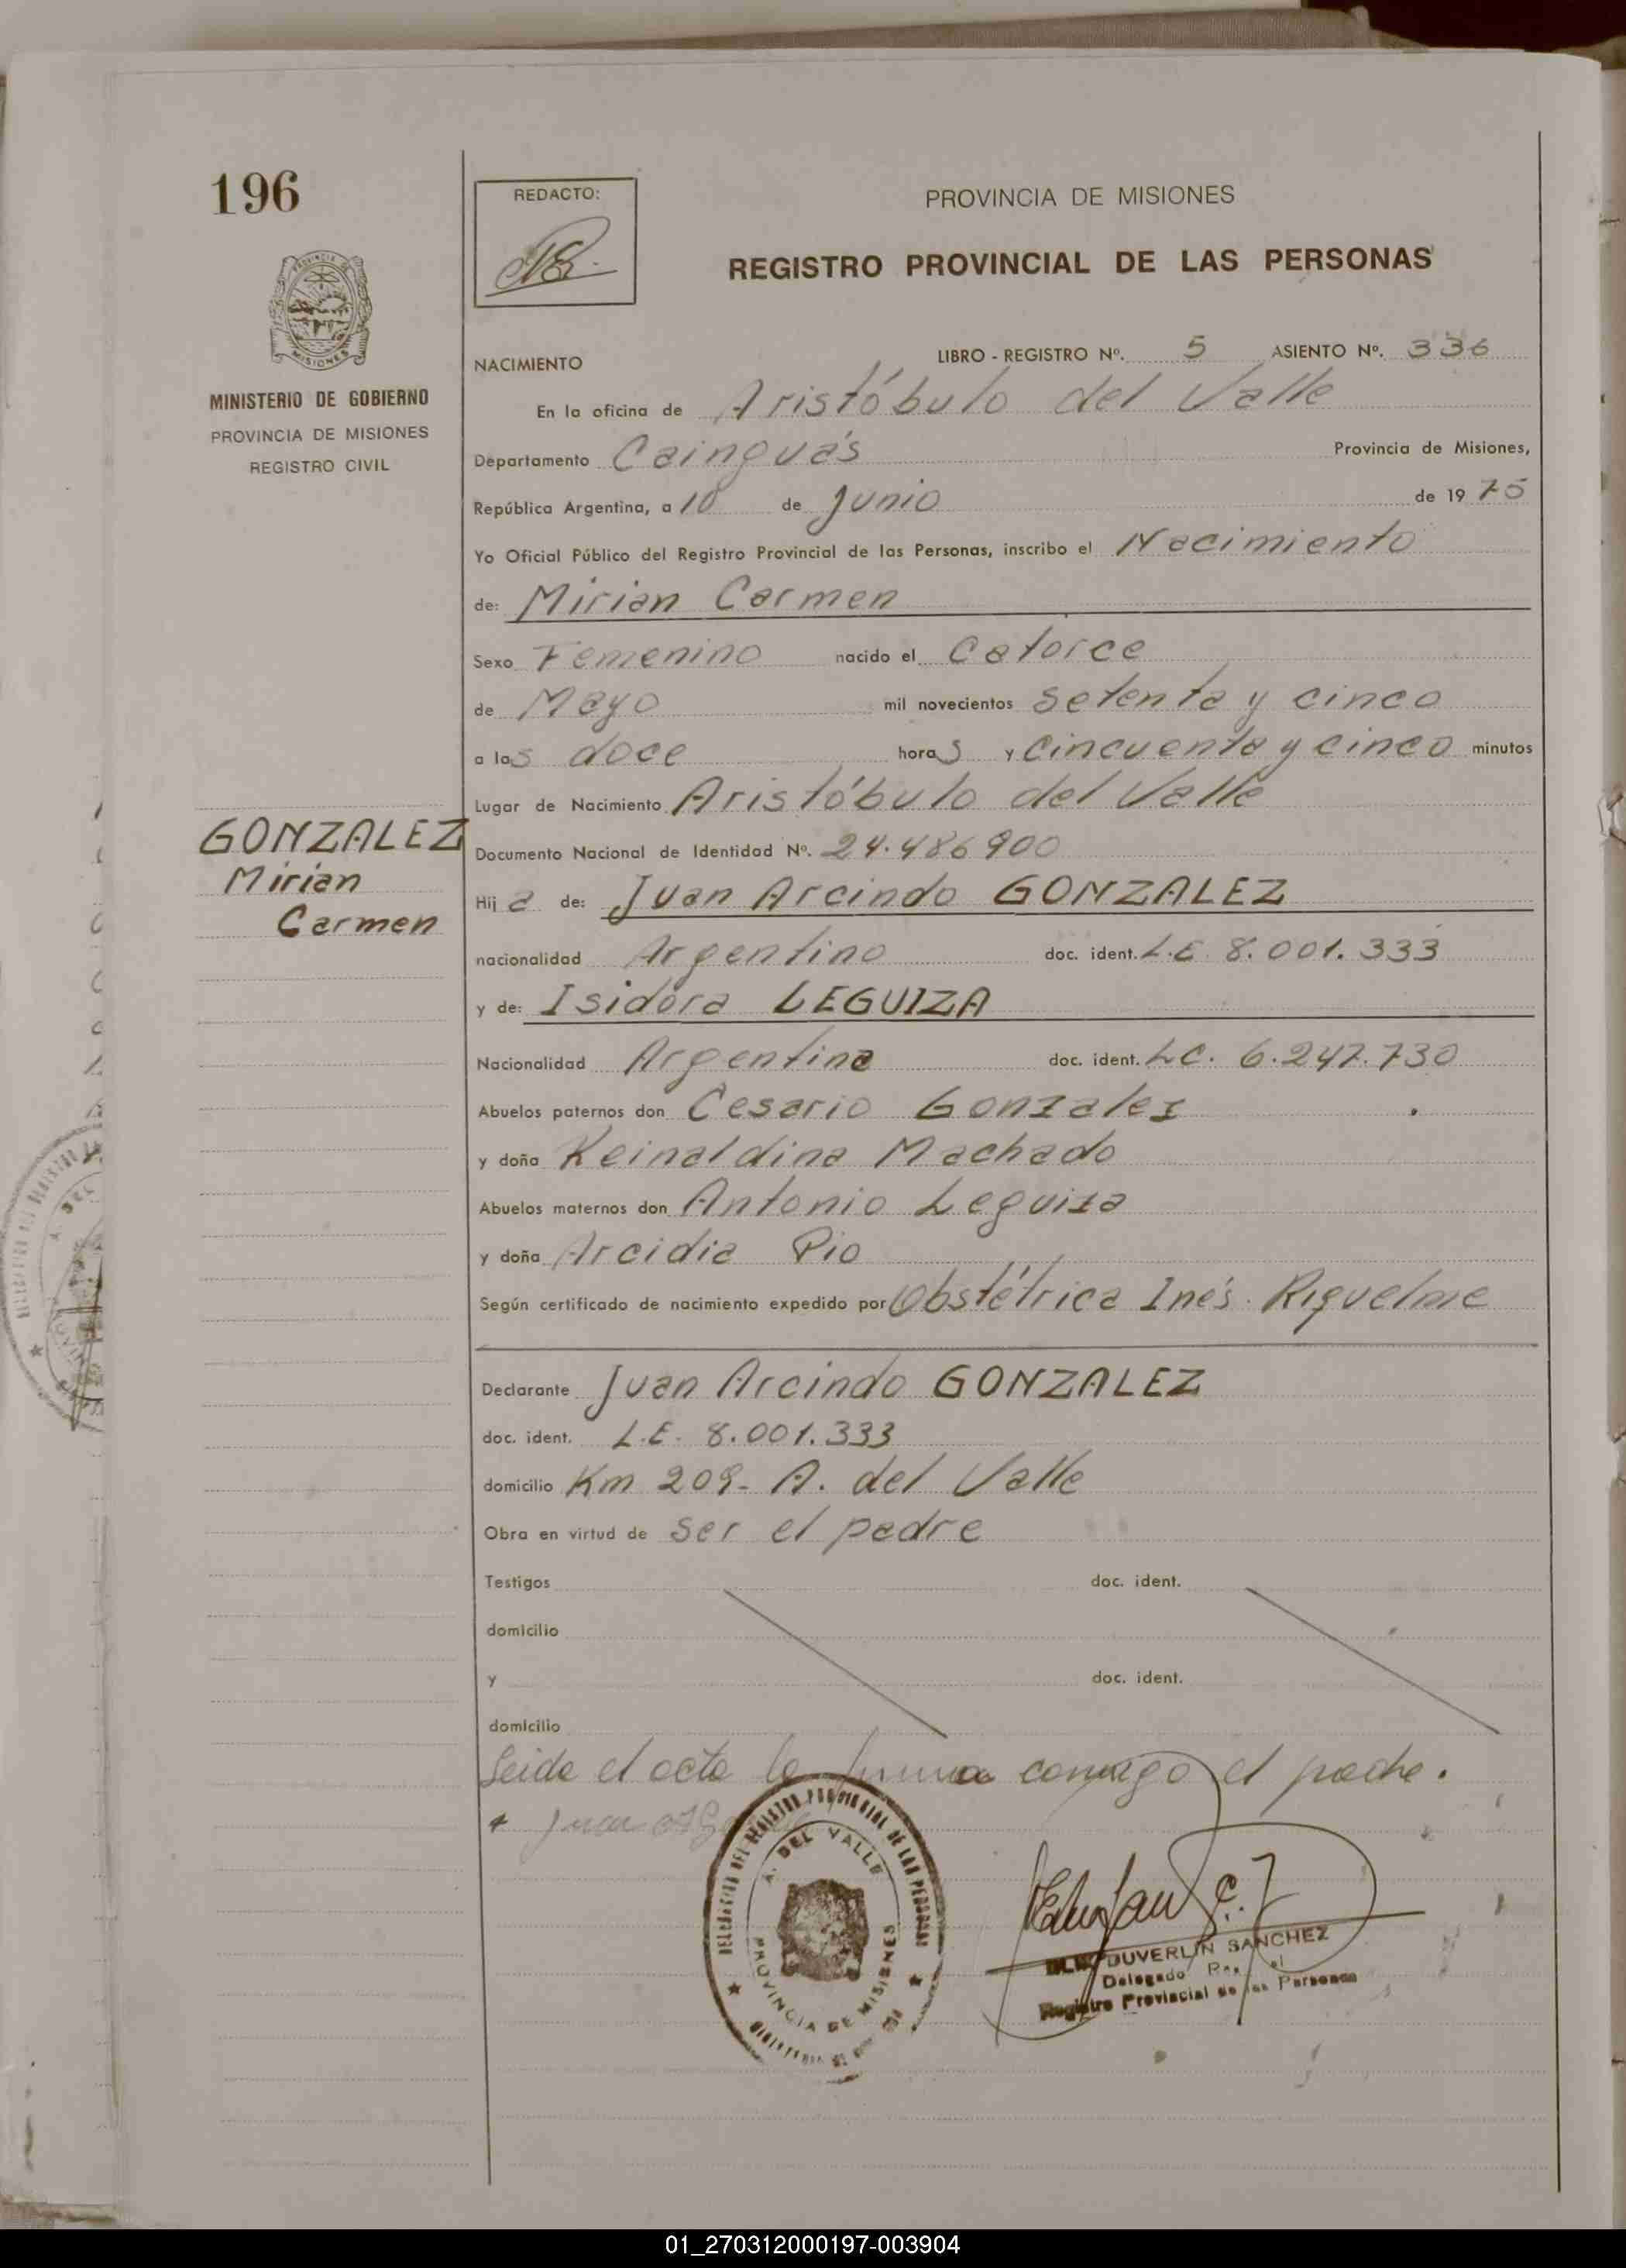 196
REDACTO:
PROVINCIA DE MISIONES
REGISTRO PROVINCIAL DE LAS PERSONAS
PROVINCIA DE
MISIONES
MINISTERIO DE GOBIERNO
PROVINCIA DE MISIONES
REGISTRO CIVIL
NACIMIENTO LIBRO - REGISTRO Nº. 5 ASIENTO Nº. 336
En la oficina de Aristóbulo del Valle
Departamento Cainguás Provincia de Misiones,
República Argentina, a 10 de Junio de 1975
Yo Oficial Público del Registro Provincial de las Personas, inscribo el Nacimiento
de: Mirian Carmen
Sexo Femenino nacido el Catorce
de Mayo mil novecientos setenta y cinco
a las doce horas y cincuenta y cinco minutos
Lugar de Nacimiento Aristóbulo del Valle
GONZALEZ
Mirian
Carmen
Documento Nacional de Identidad Nº. 24.486900
Hija de: Juan Arcindo GONZALEZ
nacionalidad Argentino doc. ident. L.E. 8.001.333
y de: Isidora LEGUIZA
Nacionalidad Argentina doc. ident. L.C. 6.247.730
Abuelos paternos don Cesario Gonzalez
y doña Reinaldina Machado
Abuelos maternos don Antonio Leguiza
y doña Arcidia Pio
Según certificado de nacimiento expedido por Obstétrica Inés Riquelme
Declarante Juan Arcindo GONZALEZ
doc. ident. L.E. 8.001.333
domicilio Km 209- A. del Valle
Obra en virtud de ser el padre
Testigos doc. ident.
domicilio
y doc. ident.
domicilio
Leida el acta la firma conmigo el padre.
Juan
DELEGACION DEL REGISTRO PROVINCIAL DE LAS PERSONAS
A. DEL VALLE
PROVINCIA DE MISIONES
DUVERLIN SANCHEZ
Delegado
Registro Provincial de las Personas
01_270312000197-003904